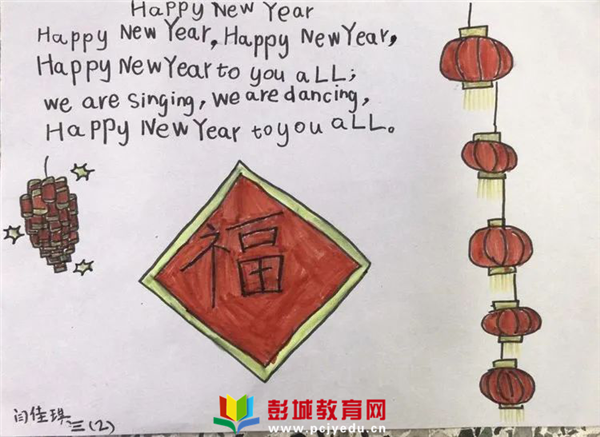 Happy New Year
Happy New Year, Happy New Year,
Happy New Year to you all;
we are singing, we are dancing,
Happy New Year to you all。
福
闫佳琪 三(2)
彭城教育网
www.pcjyedu.cn